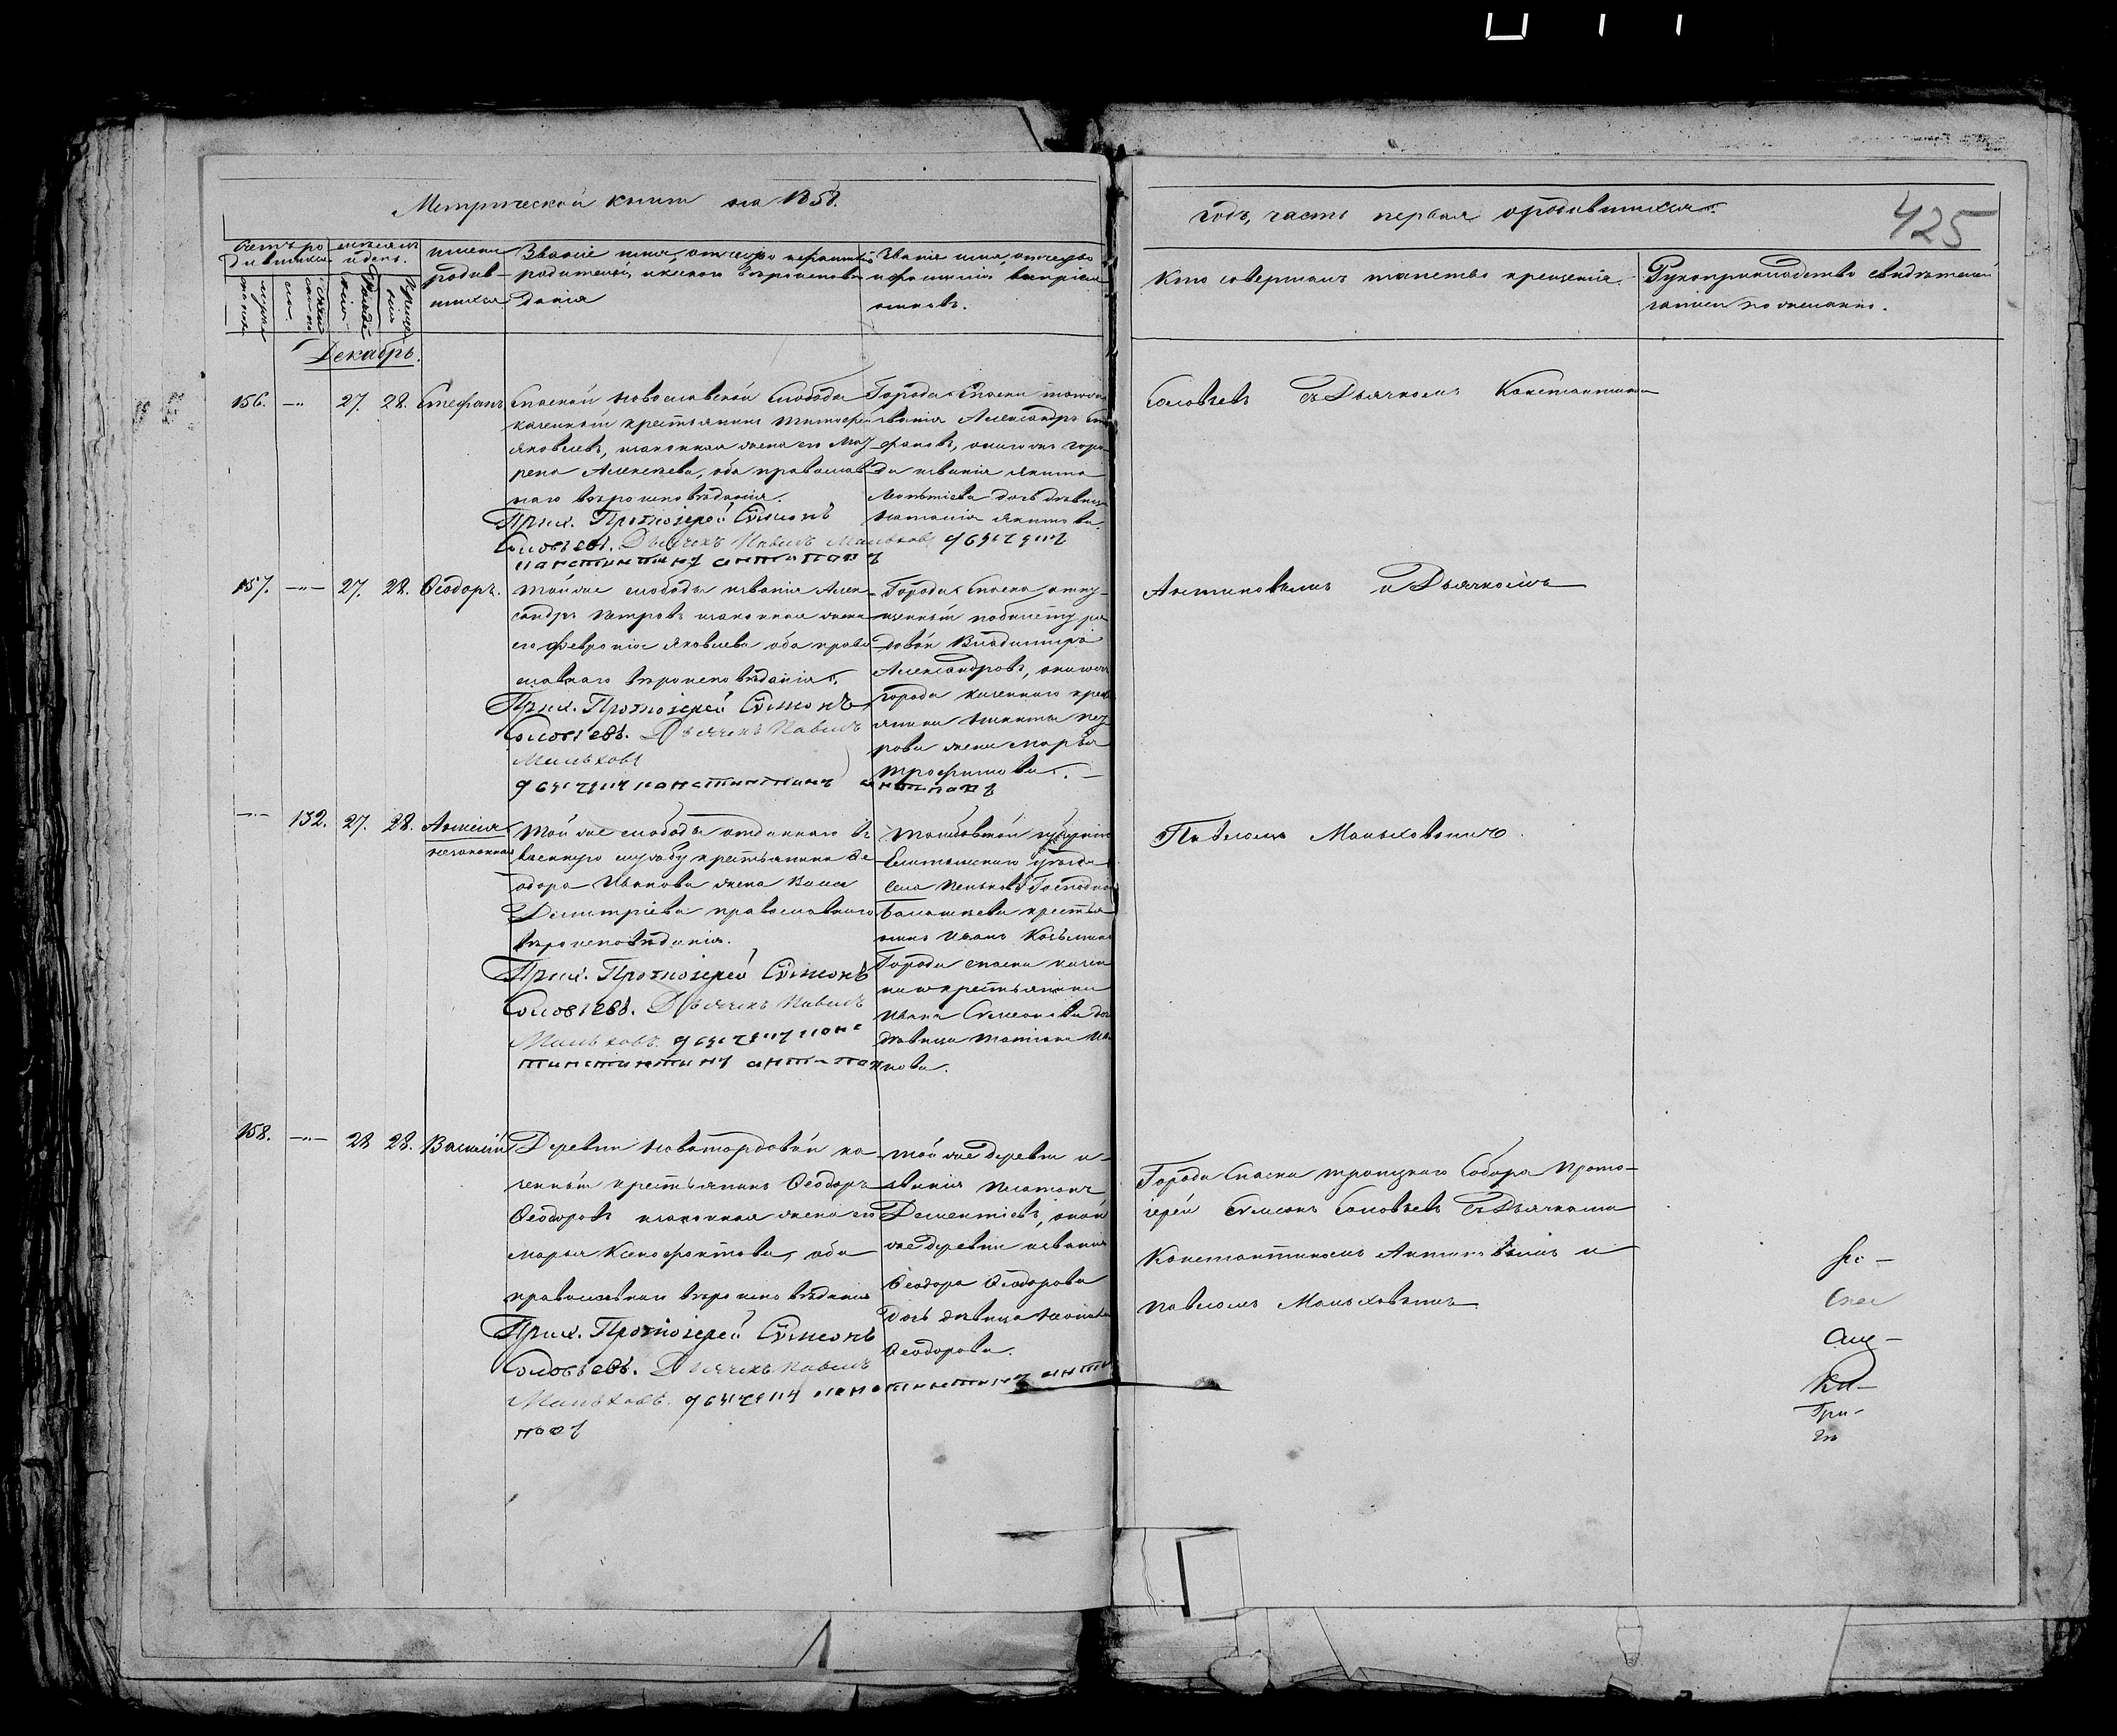 Метрической книги на 1858.
годъ, часть первая о родившихся.
425
Счетъ родившихся.
мѣсяцъ и день.
мужеска пола.
женска пола.
рожденія
крещенія
имена родившихся
Званіе имя, отчество и фамилія родителей, и какого вѣроисповѣданія
Званіе имя, отчество и фамилія воспріемниковъ.
Кто совершалъ таинство крещенія.
Рукоприкладство свидѣтелей записи по желанію.
Декабрь.
156.
27.
28.
Стефанъ
Спаской Новославской Слободы
казенный крестьянинъ
Яковлевъ, законная жена его Мав
рена Алексѣева, оба православ
наго вѣроисповѣданія.
Прих. Протоіерей Сѵмеонъ
Соловьевъ. Дьячекъ Павелъ Мальховъ дьячекъ
константинъ антиповъ
Города Спаска
званія Александръ Сте
фановъ, онаго же горо
да званія Никита
дочь дѣвица
Наталія Никитова.
Соловьевъ съ Дьячкомъ Константиномъ
157.
27.
28.
Ѳеодоръ.
Той же слободы званія Алек
сандръ Петровъ законная жена
его Февронія Яковлева оба право
славнаго вѣроисповѣданія.
Прих. Протоіерей Сѵмеонъ
Соловьевъ. Дьячекъ Павелъ
Мальховъ
дьячекъ константинъ антиповъ
Города Спаска отпу
щенный по билету ря
довой Владимиръ
Александровъ, онаго же
города казеннаго кресть
янина Никиты Пет
рова жена Марья
Трофимова.
Антиповымъ и Дьячкомъ
132.
27.
28.
Анисія
незаконная
Той же слободы отданнаго въ
военную службу крестьянина Ѳе
одора Иванова жена Васса
Димитріева православнаго
вѣроисповѣданія.
Прих. Протоіерей Сѵмеонъ
Соловьевъ. Дьячекъ Павелъ
Мальховъ. дьячекъ конс
тантинъ антипов
Тамбовской губерніи
Елатомскаго уѣзда
села Пеньковъ Господина
Балашева крестья
нинъ Иванъ Козьминъ
Города Спаска казен
наго крестьянина
Ивана Сѵмеонова дочь
дѣвица Татіана Ива
нова.
Павломъ Мальховымъ.
158.
28
28.
Василій
Деревни Новотордовой ка
зенный крестьянинъ Ѳеодоръ
Ѳеодоровъ законная жена его
Марья Ксенофонтова, оба
православнаго вѣроисповѣданія
Прих. Протоіерей Сѵмеонъ
Соловьевъ. Дьячекъ Павелъ
Мальховъ. дьячекъ константинъ анти
повъ
той же деревни и
званія Платонъ
Дементіевъ, оной
же деревни и званія
Ѳеодора Ѳеодорова
дочь дѣвица
Ѳеодорова.
Города Спаска Троицкаго Собора Прото
іерей Сѵмеонъ Соловьевъ съ Дьячками
Константиномъ Антиповымъ и
Павломъ Мальховымъ
Спас
Гри-